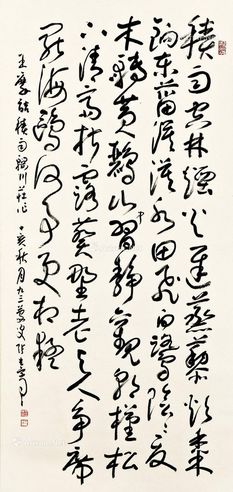 積雨空林煙火遲蒸藜炊黍
餉東菑漠漠水田飛白鷺陰陰夏
木囀黃鸝山中習靜觀朝槿松
下清齋折露葵野老與人爭席
罷海鷗何事更相疑
王摩詰積雨輞川莊作 丁亥秋月九三叟